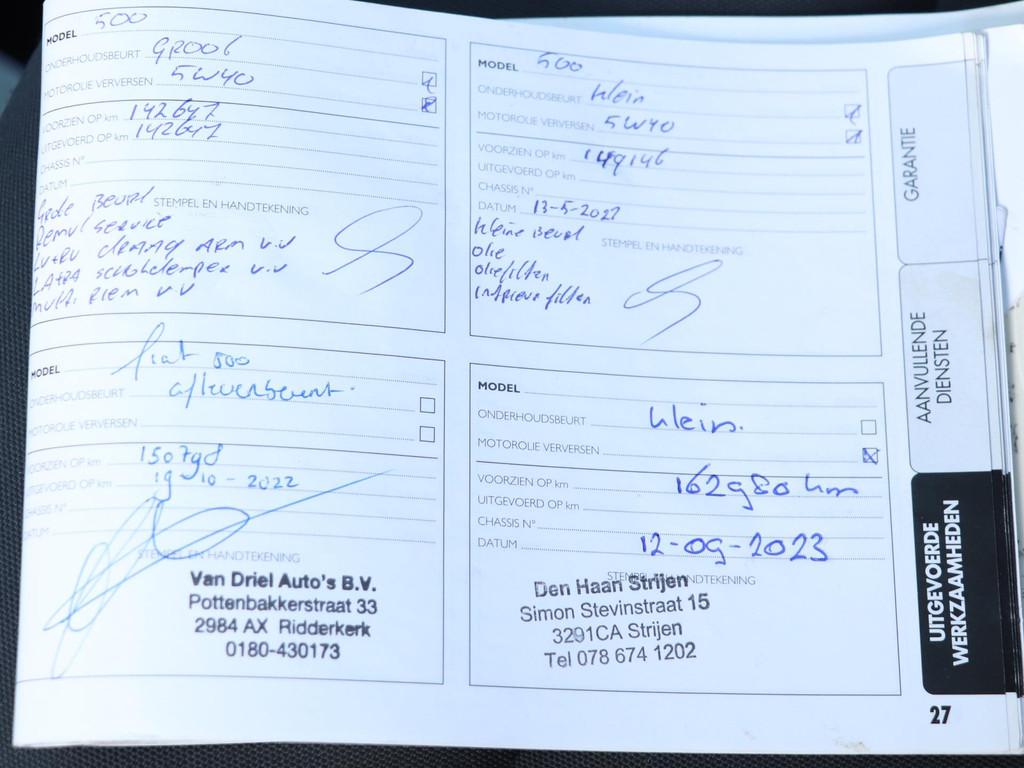 MODEL 500
ONDERHOUDSBEURT Groot
MOTOROLIE VERVERSEN 5W40
VOORZIEN OP km 142647
UITGEVOERD OP km 142647
CHASSIS N°
DATUM
STEMPEL EN HANDTEKENING
Grote Beurt
Remvl service
LV+RV draag ARM v.v
LA+RA schokdemper v.v
multi Riem v.v
MODEL 500
ONDERHOUDSBEURT klein
MOTOROLIE VERVERSEN 5W40
VOORZIEN OP km 149146
UITGEVOERD OP km
CHASSIS N°
DATUM 13-5-2022
STEMPEL EN HANDTEKENING
kleine Beurt
olie
oliefilter
interieur filter
MODEL fiat 500
ONDERHOUDSBEURT afleverbeurt.
MOTOROLIE VERVERSEN
VOORZIEN OP km 150798
UITGEVOERD OP km 19-10-2022
CHASSIS N°
DATUM
STEMPEL EN HANDTEKENING
Van Driel Auto's B.V.
Pottenbakkerstraat 33
2984 AX Ridderkerk
0180-430173
MODEL
ONDERHOUDSBEURT klein.
MOTOROLIE VERVERSEN
VOORZIEN OP km 162980 km
UITGEVOERD OP km
CHASSIS N°
DATUM 12-09-2023
STEMPEL EN HANDTEKENING
Den Haan Strijen
Simon Stevinstraat 15
3291CA Strijen
Tel 078 674 1202
GARANTIE
AANVULLENDE
DIENSTEN
UITGEVOERDE
WERKZAAMHEDEN
27